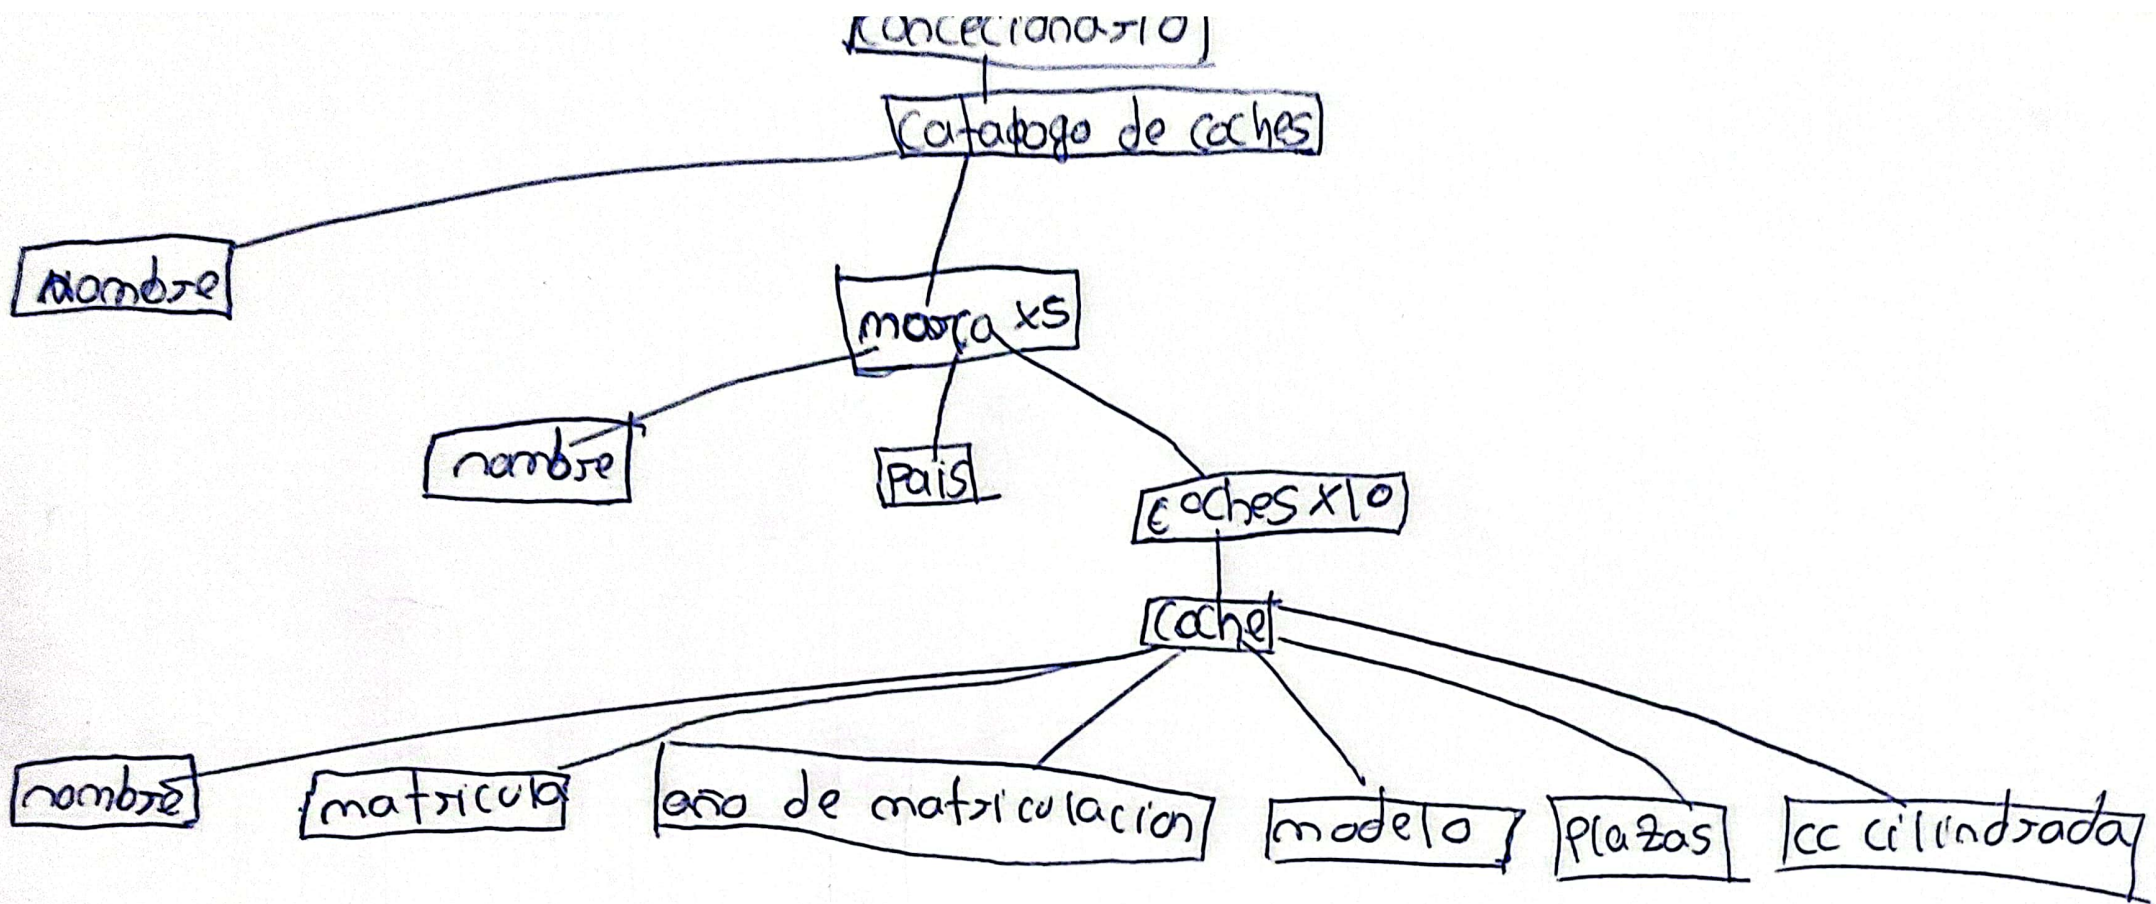 Concecionario
Catalogo de coches
Nombre
marca x5
nombre
Pais
coches x10
Coche
nombre
matricula
año de matriculacion
modelo
Plazas
cc cilindrada